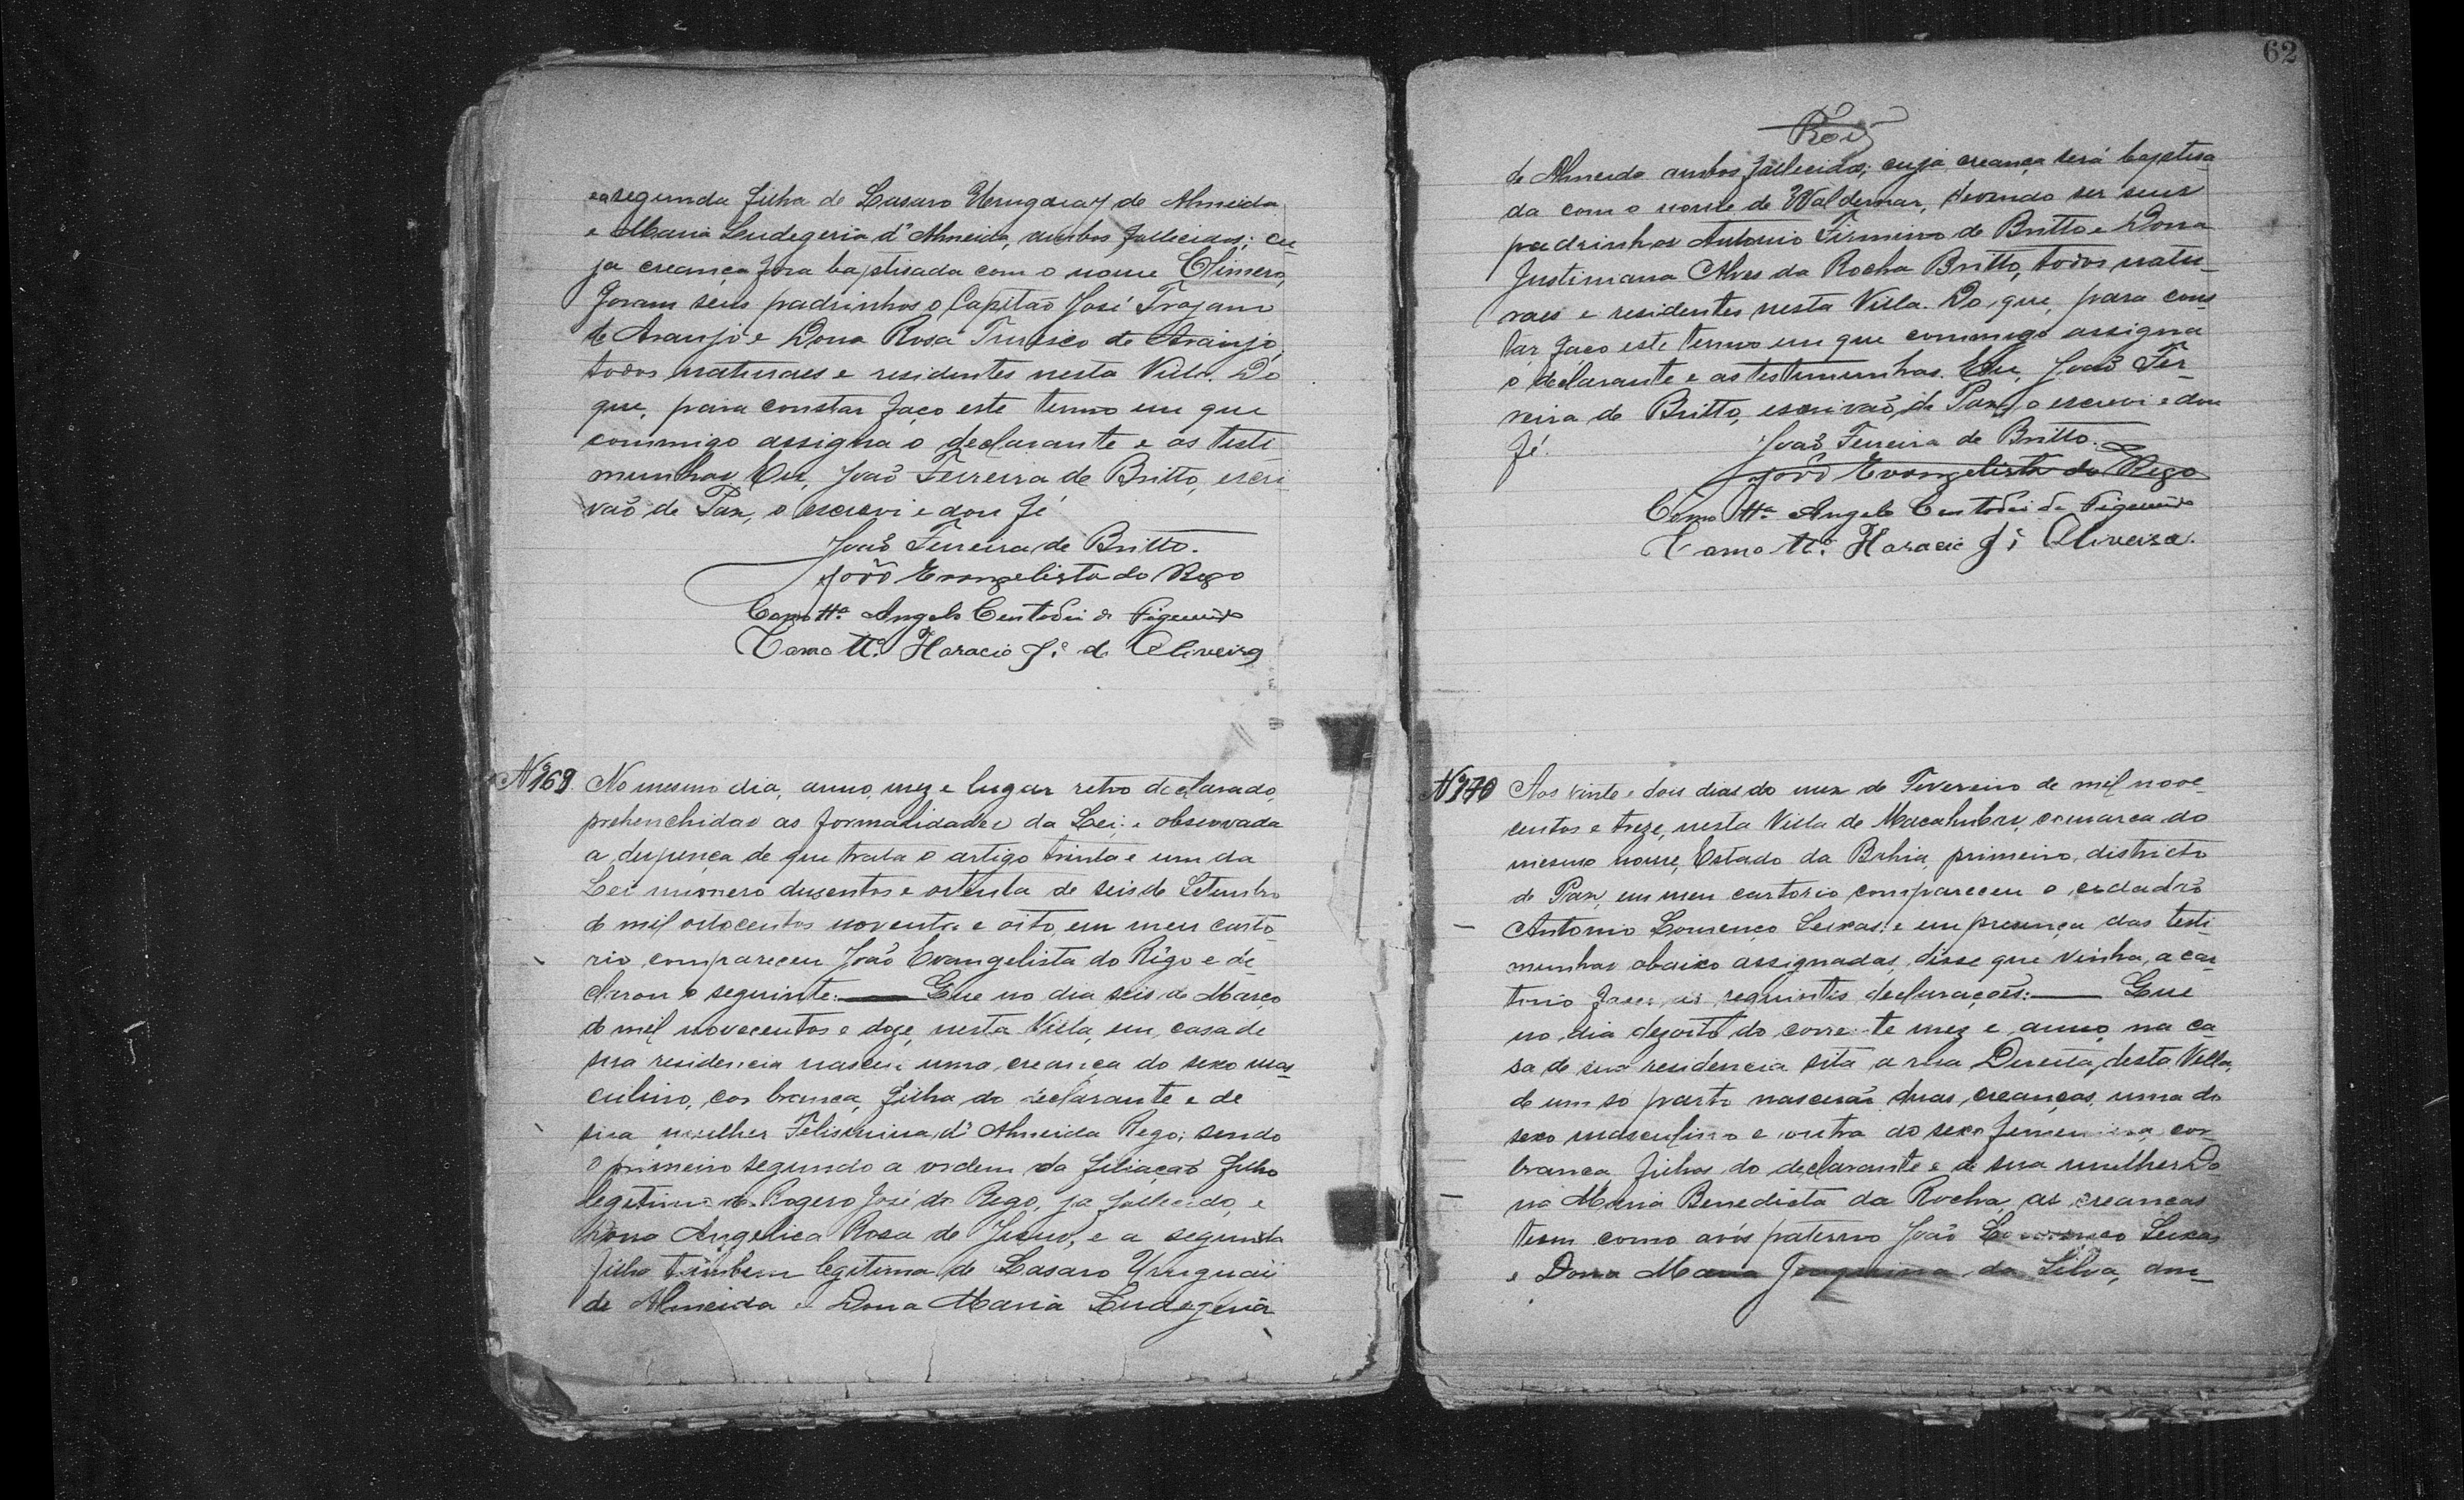 e a segunda filha de Lasaro Uruguay de Almeida
e Maria Ludegeria d'Almeida, ambos fallecidos; cu-
ja creança fora baptisada com o nome
Foram seus padrinhos o Capitão José Trajano
de Araujo e Dona Rosa de Araujo,
todos naturaes e residentes nesta Villa. Do
que, para constar faço este termo em que
commigo assigna o declarante e as teste-
munhas. Eu, João Ferreira de Britto, escri-
vão de Paz, o escrevi e dou fé
João Ferreira de Britto.
João Evangelista do Rego
Como tta. Angelo Custodio de Figueirêdo
Como tta. Horacio Je. de Oliveira
Nº 169 No mesmo dia, anno, mez e lugar retro declarado,
prehenchidas as formalidades da Lei e observada
a dispença de que trata o artigo trinta e um da
Lei numero dusentos e oitenta de seis de Setembro
de mil oitocentos noventa e oito, em meu carto-
rio compareceu João Evangelista do Rêgo e de-
clarou o seguinte: Que no dia seis de Março
de mil novecentos e doze, nesta Villa, em casa de
sua residencia nasceu uma creança do sexo mas-
culino, cor branca, filha do declarante e de
sua mulher Felismina d'Almeida Rego; sendo
o primeiro segundo a ordem da filiação filho
legitimo de Rogero José do Rego, já fallecido, e
Dona Angelica Rosa de Jesus, e a segunda
filha tambem legitima de Lasaro Uruguaii
de Almeida e Dona Maria Ludegeria
62
de Almeida ambos fallecidos; cuja creança será baptisa
da com o nome de Waldemar, devendo ser seus
padrinhos Antonio Firmino de Britto e Dona
Justiniana Alves da Rocha Britto, todos natu-
raes e residentes nesta Villa. Do que, para cons-
tar, faço este termo em que commigo assigna
o declarante e as testemunhas. Eu, João Fer-
reira de Britto, escrivão de Paz, o escrevi e dou
fé.
João Ferreira de Britto.
João Evangelista do Rego
Como tta. Angelo Custodio de Figueirêdo
Como tta. Horacio Je. Oliveira.
Nº 170 Aos vinte e dois dias do mez de Fevereiro de mil nove-
centos e treze, nesta Villa de Macahubas, comarca do
mesmo nome, Estado da Bahia, primeiro districto
de Paz, em meu cartorio compareceu o cidadão
Antonio Lourenço Seixas; e em presença das teste-
munhas abaixo assignadas, disse que vinha, a car-
torio faser as seguintes declarações: Que
no dia dezoito do corrente mez e anno, na ca-
sa de sua residencia sita a rua Direita, desta Villa,
de um so parto nascerão duas creanças, uma do
sexo masculino e outra do sexo femenino, cor
branca, filhos do declarante e de sua mulher Do-
na Maria Benedicta da Rocha, as creanças
tem como avós paterno João Lourenço Seixas
e Dona Maria Joaquina da Silva, am-